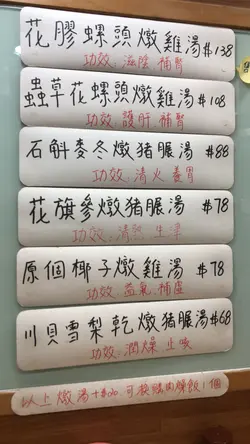 花膠螺頭燉雞湯 $138
功效: 滋陰 補腎
蟲草花螺頭燉雞湯 $108
功效: 護肝 補腎
石斛麥冬燉猪𦟌湯 $88
功效: 清火 養胃
花旗參燉猪𦟌湯 $78
功效: 清熱 生津
原個椰子燉雞湯 $78
功效: 益氣 補虛
川貝雪梨乾燉猪𦟌湯 $68
功效: 潤燥 止咳
以上燉湯+$ 可換臘肉燥飯1個